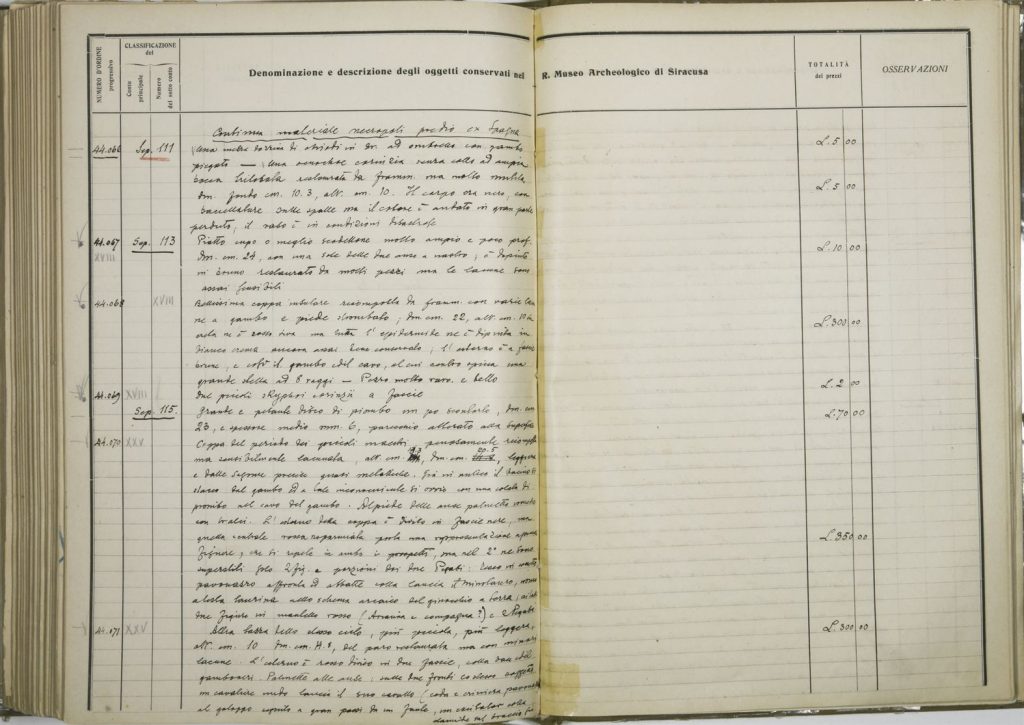 NUMERO D'ORDINE progressivo
CLASSIFICAZIONE del
Conto principale
Numero del sotto conto
Denominazione e descrizione degli oggetti conservati nel R. Museo Archeologico di Siracusa
TOTALITÀ dei prezzi
OSSERVAZIONI
Continua materiale necropoli predio ex Spagna
44.066 Sep. 111
ad ombelico con gambo L. 5 00
piegato — Una oenochoe corinzia senza collo ad ampia
bocca trilobata restaurata da framm. ma molto mutila
dm. fondo cm. 10.3, alt. cm. 10. Il corpo era nero, con L. 5 00
baccellature sulle spalle ma il colore è andato in gran parte
perduto, il vaso è in condizioni disastrose
44.067 Sep. 113 Piatto cupo o meglio scodellone molto ampio e poco prof. L. 10 00
XVIII dm. cm. 24, con una sola delle due anse a nastro; è dipinto
in bruno restaurato da molti pezzi ma le lacune sono
assai
44.068 XVIII Bellissima coppa insulare ricomposta da framm. con varie lacu
ne a gambo e piede strombato; dm. cm. 22, alt. cm. L. 300 00
ma tutta l'epidermide ne è dipinta in
bianco crema ancora assai bene conservato; l'esterno è a fasce
brune, e così il gambo ed il cavo, al cui centro spicca una
grande stella ad 8 raggi — Pezzo molto raro e bello
44.069 XVIII due piccoli skyphoi corinzi a fascie L. 2 00
Sep. 115. Grande e pesante disco di piombo un po' L. 70 00
23, e spessore medio mm. 6, parecchio alterato alla superficie
44.070 XXV Coppa del periodo dei piccoli maestri, penosamente ricomposta
ma sensibilmente lacunata, alt. cm. dm. cm. 20.5, leggera
e dalle sagome precise quasi metalliche. Già in antico il bacino si
staccò dal gambo ed a tale inconveniente si ovviò con una colata di
piombo nel cavo del gambo. Al piede delle anse palmette
con tralci. L'esterno della coppa è diviso in fascie nere, ma
quella centrale rossa risparmiata porta una rappresentazione a piccole
figure, che si ripete in ambo i prospetti, ma nel 2° ne sono L. 350 00
superstiti solo 2 fig. e porzioni dei due Pigati: Teseo in
pavonazzo affronta ed abbatte colla lancia il Minotauro, uomo
a testa taurina nello schema arcaico del ginocchio a terra; ai lati
due figure in mantello rosso (Arianna e compagna?) e 2
44.071 XXV Altra tazza dello stesso ciclo, più piccola, più leggera, L. 300 00
alt. cm. 10 dm. cm. del pari restaurata ma con minori
lacune. L'esterno è rosso diviso in due fascie, colla
Palmette alle anse: sulle due fronti
un cavaliere nudo lancia il suo cavallo (coda e criniera pavonazze)
al galoppo